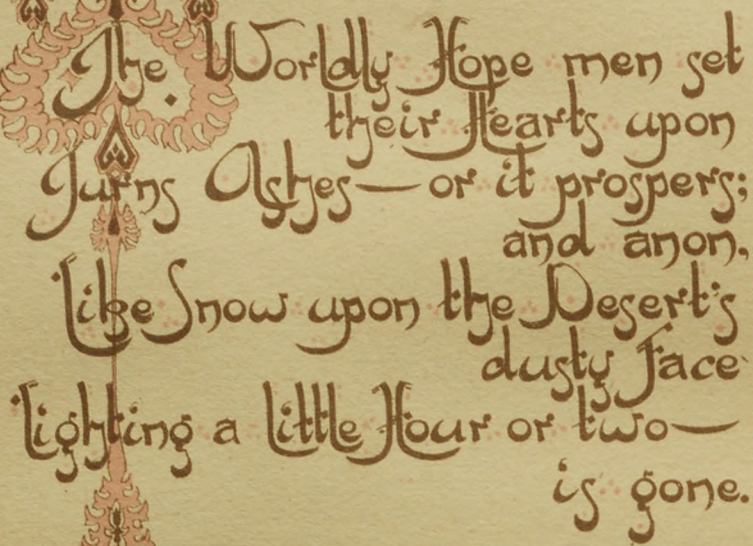 The Worldly Hope men set
their Hearts upon
Turns Ashes—or it prospers;
and anon,
Like Snow upon the Desert's
dusty Face
Lighting a Little Hour or two—
is gone.